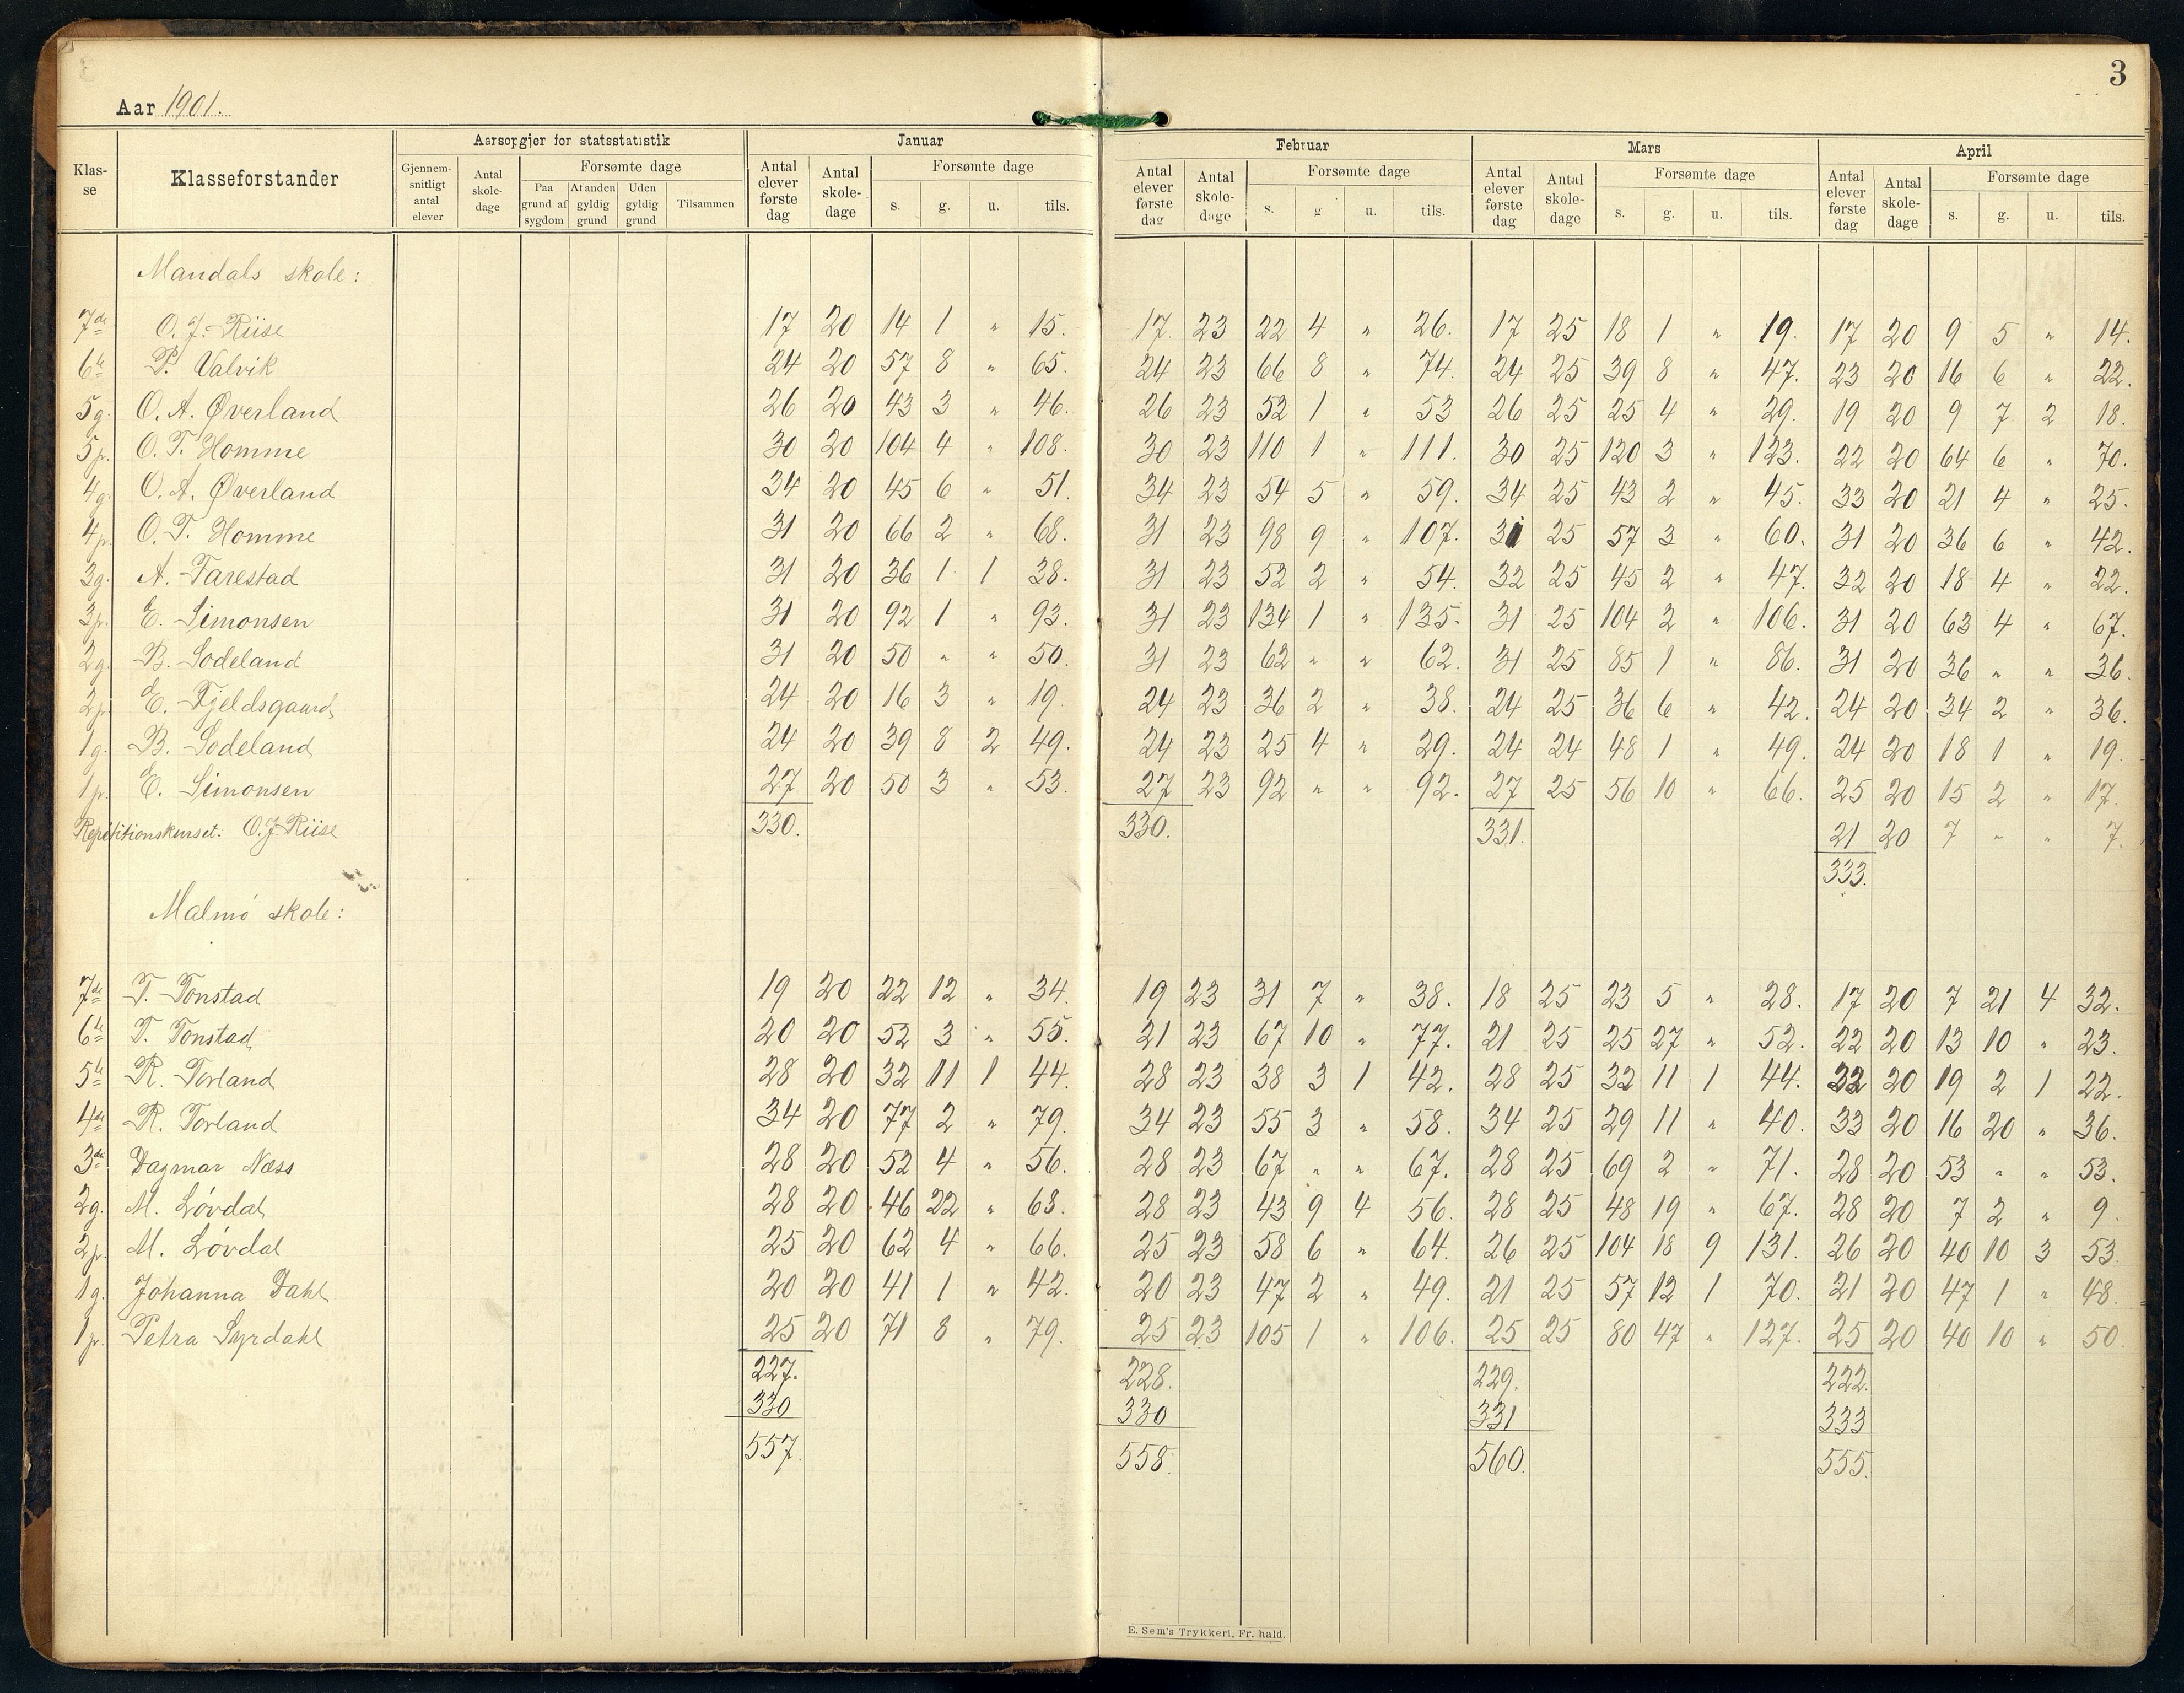 3
Aar 1901.
Klasse Klasseforstander Aarsopgjør for statsstatistik Januar Februar Mars April
Gjennemsnitligt antal elever Antal skoledage Forsømte dage Antal elever første dag Antal skoledage Forsømte dage Antal elever første dag Antal skoledage Forsømte dage Antal elever første dag Antal skoledage Forsømte dage Antal elever første dag Antal skoledage Forsømte dage
Paa grund af sygdom Af anden gyldig grund Uden gyldig grund Tilsammen s. g. u. tils. s. g u. tils. s. g. u. tils. s. g. u. tils.
Mandals skole:
7de O. J. Riise 17 20 14 1 " 15. 17. 23 22 4 " 26. 17 25 18 1 " 19. 17 20 9 5 " 14.
6te P. Valvik 24 20 57 8 " 65. 24 23 66 8 " 74. 24 25 39 8 " 47. 23 20 16 6 " 22.
5g. O. A. Øverland 26 20 43 3 " 46. 26 23 52 1 " 53 26 25 25 4 " 29. 19 20 9 7 2 18.
5p. O. T. Homme 30 20 104 4 " 108. 30 23 110 1 " 111. 30 25 120 3 " 123. 22 20 64 6 " 70.
4g. O. A. Øverland 34 20 45 6 " 51. 34 23 54 5 " 59. 34 25 43 2 " 45. 33 20 21 4 " 25.
4p. O. T. Homme 31 20 66 2 " 68. 31 23 98 9 " 107. 31 25 57 3 " 60. 31 20 36 6 " 42.
3g. A. Farestad 31 20 36 1 1 38. 31 23 52 2 " 54. 32 25 45 2 " 47. 32 20 18 4 " 22.
3p. E. Simonsen 31 20 92 1 " 93. 31 23 134 1 " 135. 31 25 104 2 " 106. 31 20 63 4 " 67.
2g. B. Sodeland 31 20 50 " " 50. 31 23 62 " " 62. 31 25 85 1 " 86. 31 20 36 " " 36.
2p. E. Fjeldsgaard 24 20 16 3 " 19. 24 23 36 2 " 38. 24 25 36 6 " 42. 24 20 34 2 " 36.
1g. B. Sodeland 24 20 39 8 2 49. 24 23 25 4 " 29. 24 24 48 1 " 49. 24 20 18 1 " 19.
1p. E. Simonsen 27 20 50 3 " 53. 27 23 92 " " 92. 27 25 56 10 " 66. 25 20 15 2 " 17.
Repetitionskurset. O. J. Riise 330. 330. 331. 21 20 7 " " 7.
333.
Malmø skole:
7de T. Tonstad 19 20 22 12 " 34. 19 23 31 7 " 38. 18 25 23 5 " 28. 17 20 7 21 4 32.
6te T. Tonstad 20 20 52 3 " 55. 21 23 67 10 " 77. 21 25 25 27 " 52. 22 20 13 10 " 23.
5te R. Torland 28 20 32 11 1 44. 28 23 38 3 1 42. 28 25 32 11 1 44. 32 20 19 2 1 22.
4de R. Torland 34 20 77 2 " 79. 34 23 55 3 " 58. 34 25 29 11 " 40. 33 20 16 20 " 36.
3die Dagmar Næss 28 20 52 4 " 56. 28 23 67 " " 67. 28 25 69 2 " 71. 28 20 53 " " 53.
2g. M. Løvdal 28 20 46 22 " 68. 28 23 43 9 4 56. 28 25 48 19 " 67. 28 20 7 2 " 9.
2p. M. Løvdal 25 20 62 4 " 66. 25 23 58 6 " 64. 26 25 104 18 9 131. 26 20 40 10 3 53.
1g. Johanna Dahl 20 20 41 1 " 42. 20 23 47 2 " 49. 21 25 57 12 1 70. 21 20 47 1 " 48.
1p. Petra Syrdahl 25 20 71 8 " 79. 25 23 105 1 " 106. 25 25 80 47 " 127. 25 20 40 10 " 50.
227. 228. 229. 222.
330 330 331 333
557. 558. 560. 555.
E. Sem's Trykkeri, Fr. hald.